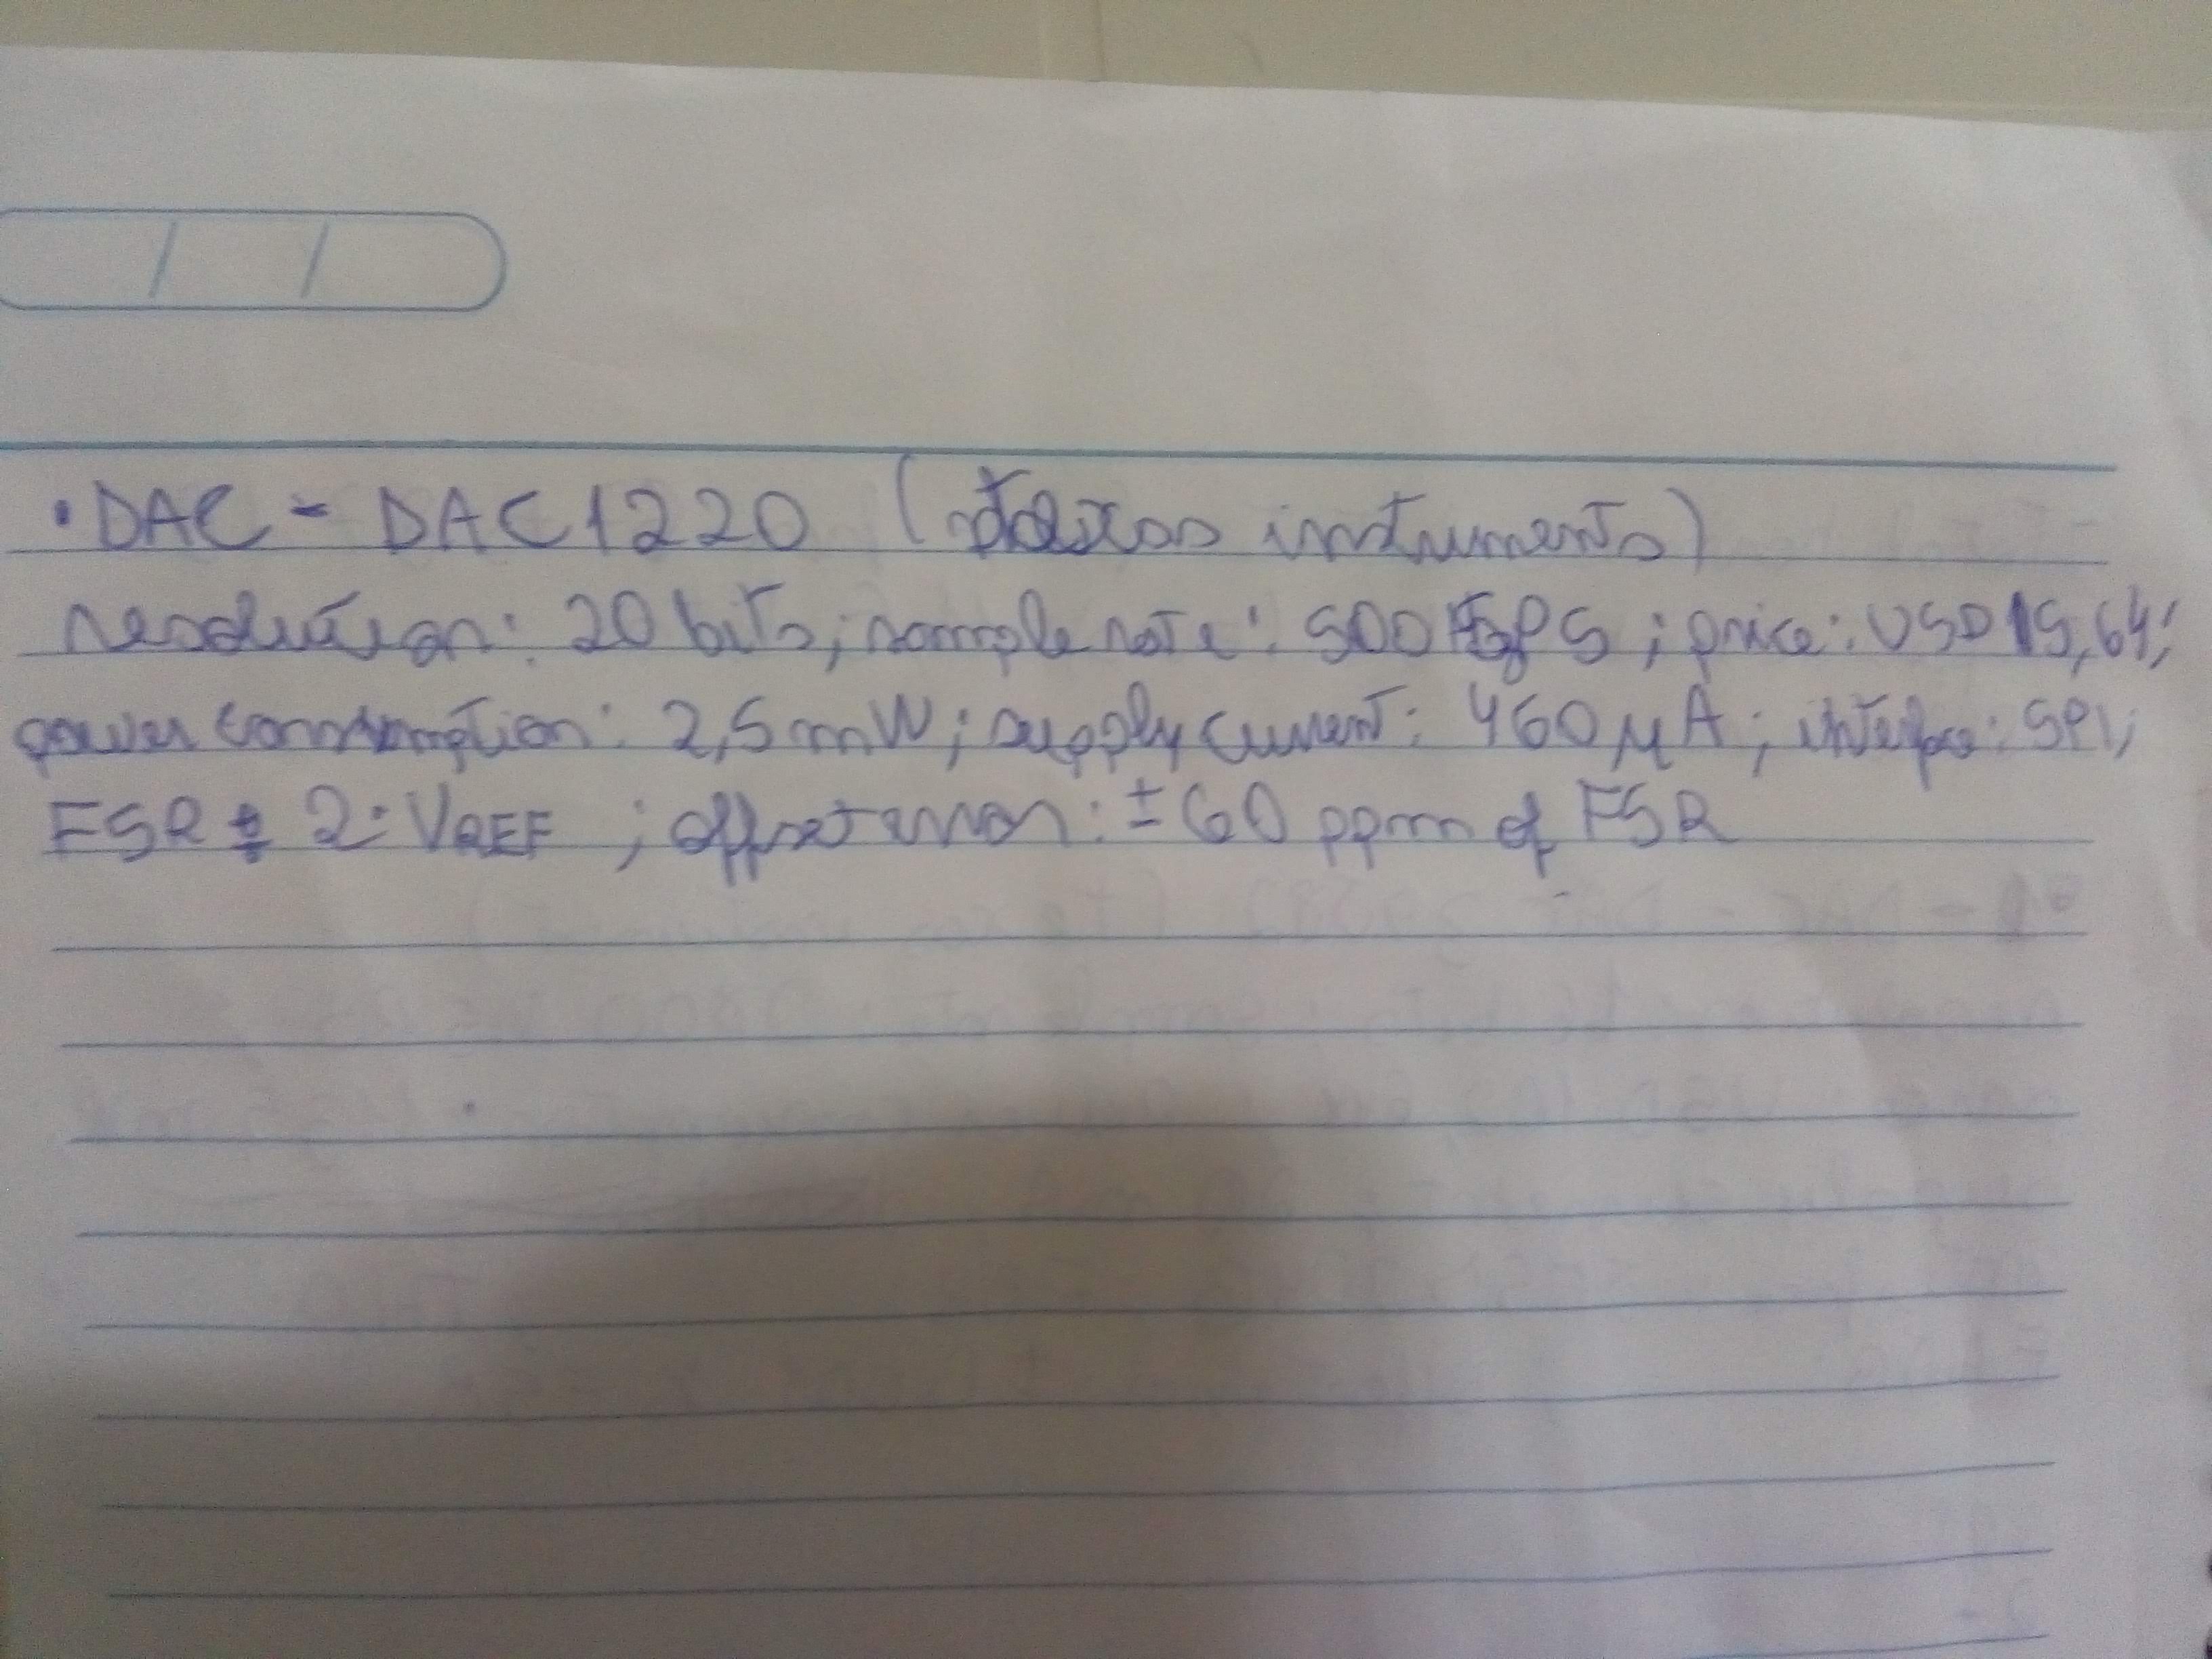 • DAC - DAC1220 (texas instruments)
resolution: 20 bits; sample rate: 500 SPS; price: USD 15,64;
power consumption: 2,5 mW; supply current: 460 μA; interface: SPI;
FSR = 2·VREF; offset error: ±60 ppm of FSR